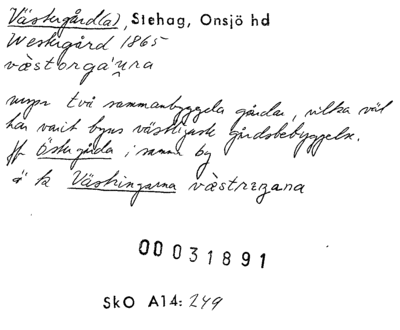 Västergård(a), Stehag, Onsjö hd
Westergård 1865
västorga'ṋra
urspr två sammanbyggda gårdar, vilka väl
har varit byns västligaste gårdsbebyggelse.
Jf Östergårda i samma by
ä k Västringarna västriŋana
00031891
SkO A14: 249